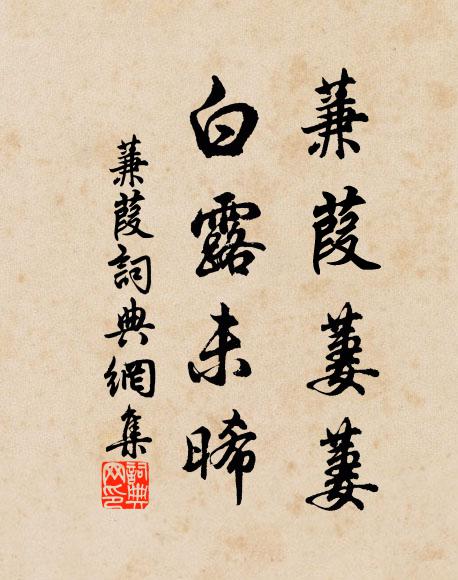 蒹葭萋萋
白露未晞
蒹葭詞典網集
詞典
网印